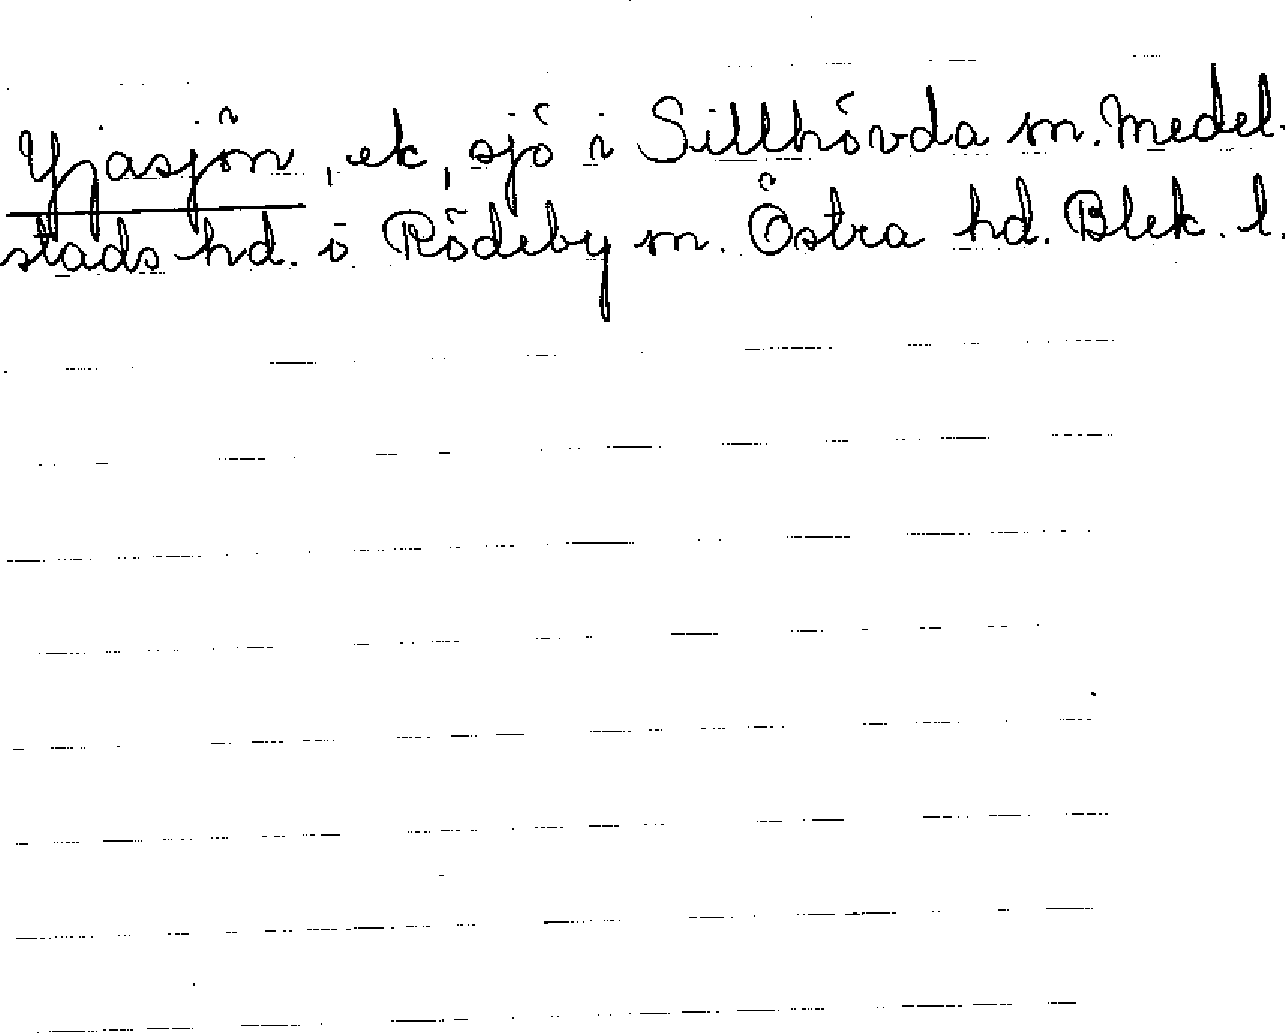 Yjasjön, ek, sjö i Sillhövda sn. Medel-
stads hd. o Rödeby sn. Östra hd. Blek. l.